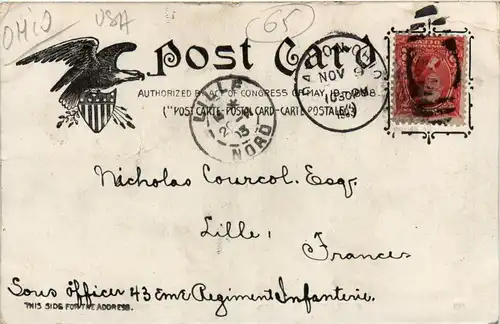 OHIO
USA
65
Post Card
AUTHORIZED BY ACT OF CONGRESS OF MAY 19 1898.
("POST CARTE-POSTAL CARD-CARTE POSTALE")
LILLE
NORD
NOV 9
1030PM
Nicholas Courcol. Esq.
Lille,
France.
Sous Officer 43 eme Regiment Infanterie.
THIS SIDE FOR THE ADDRESS.